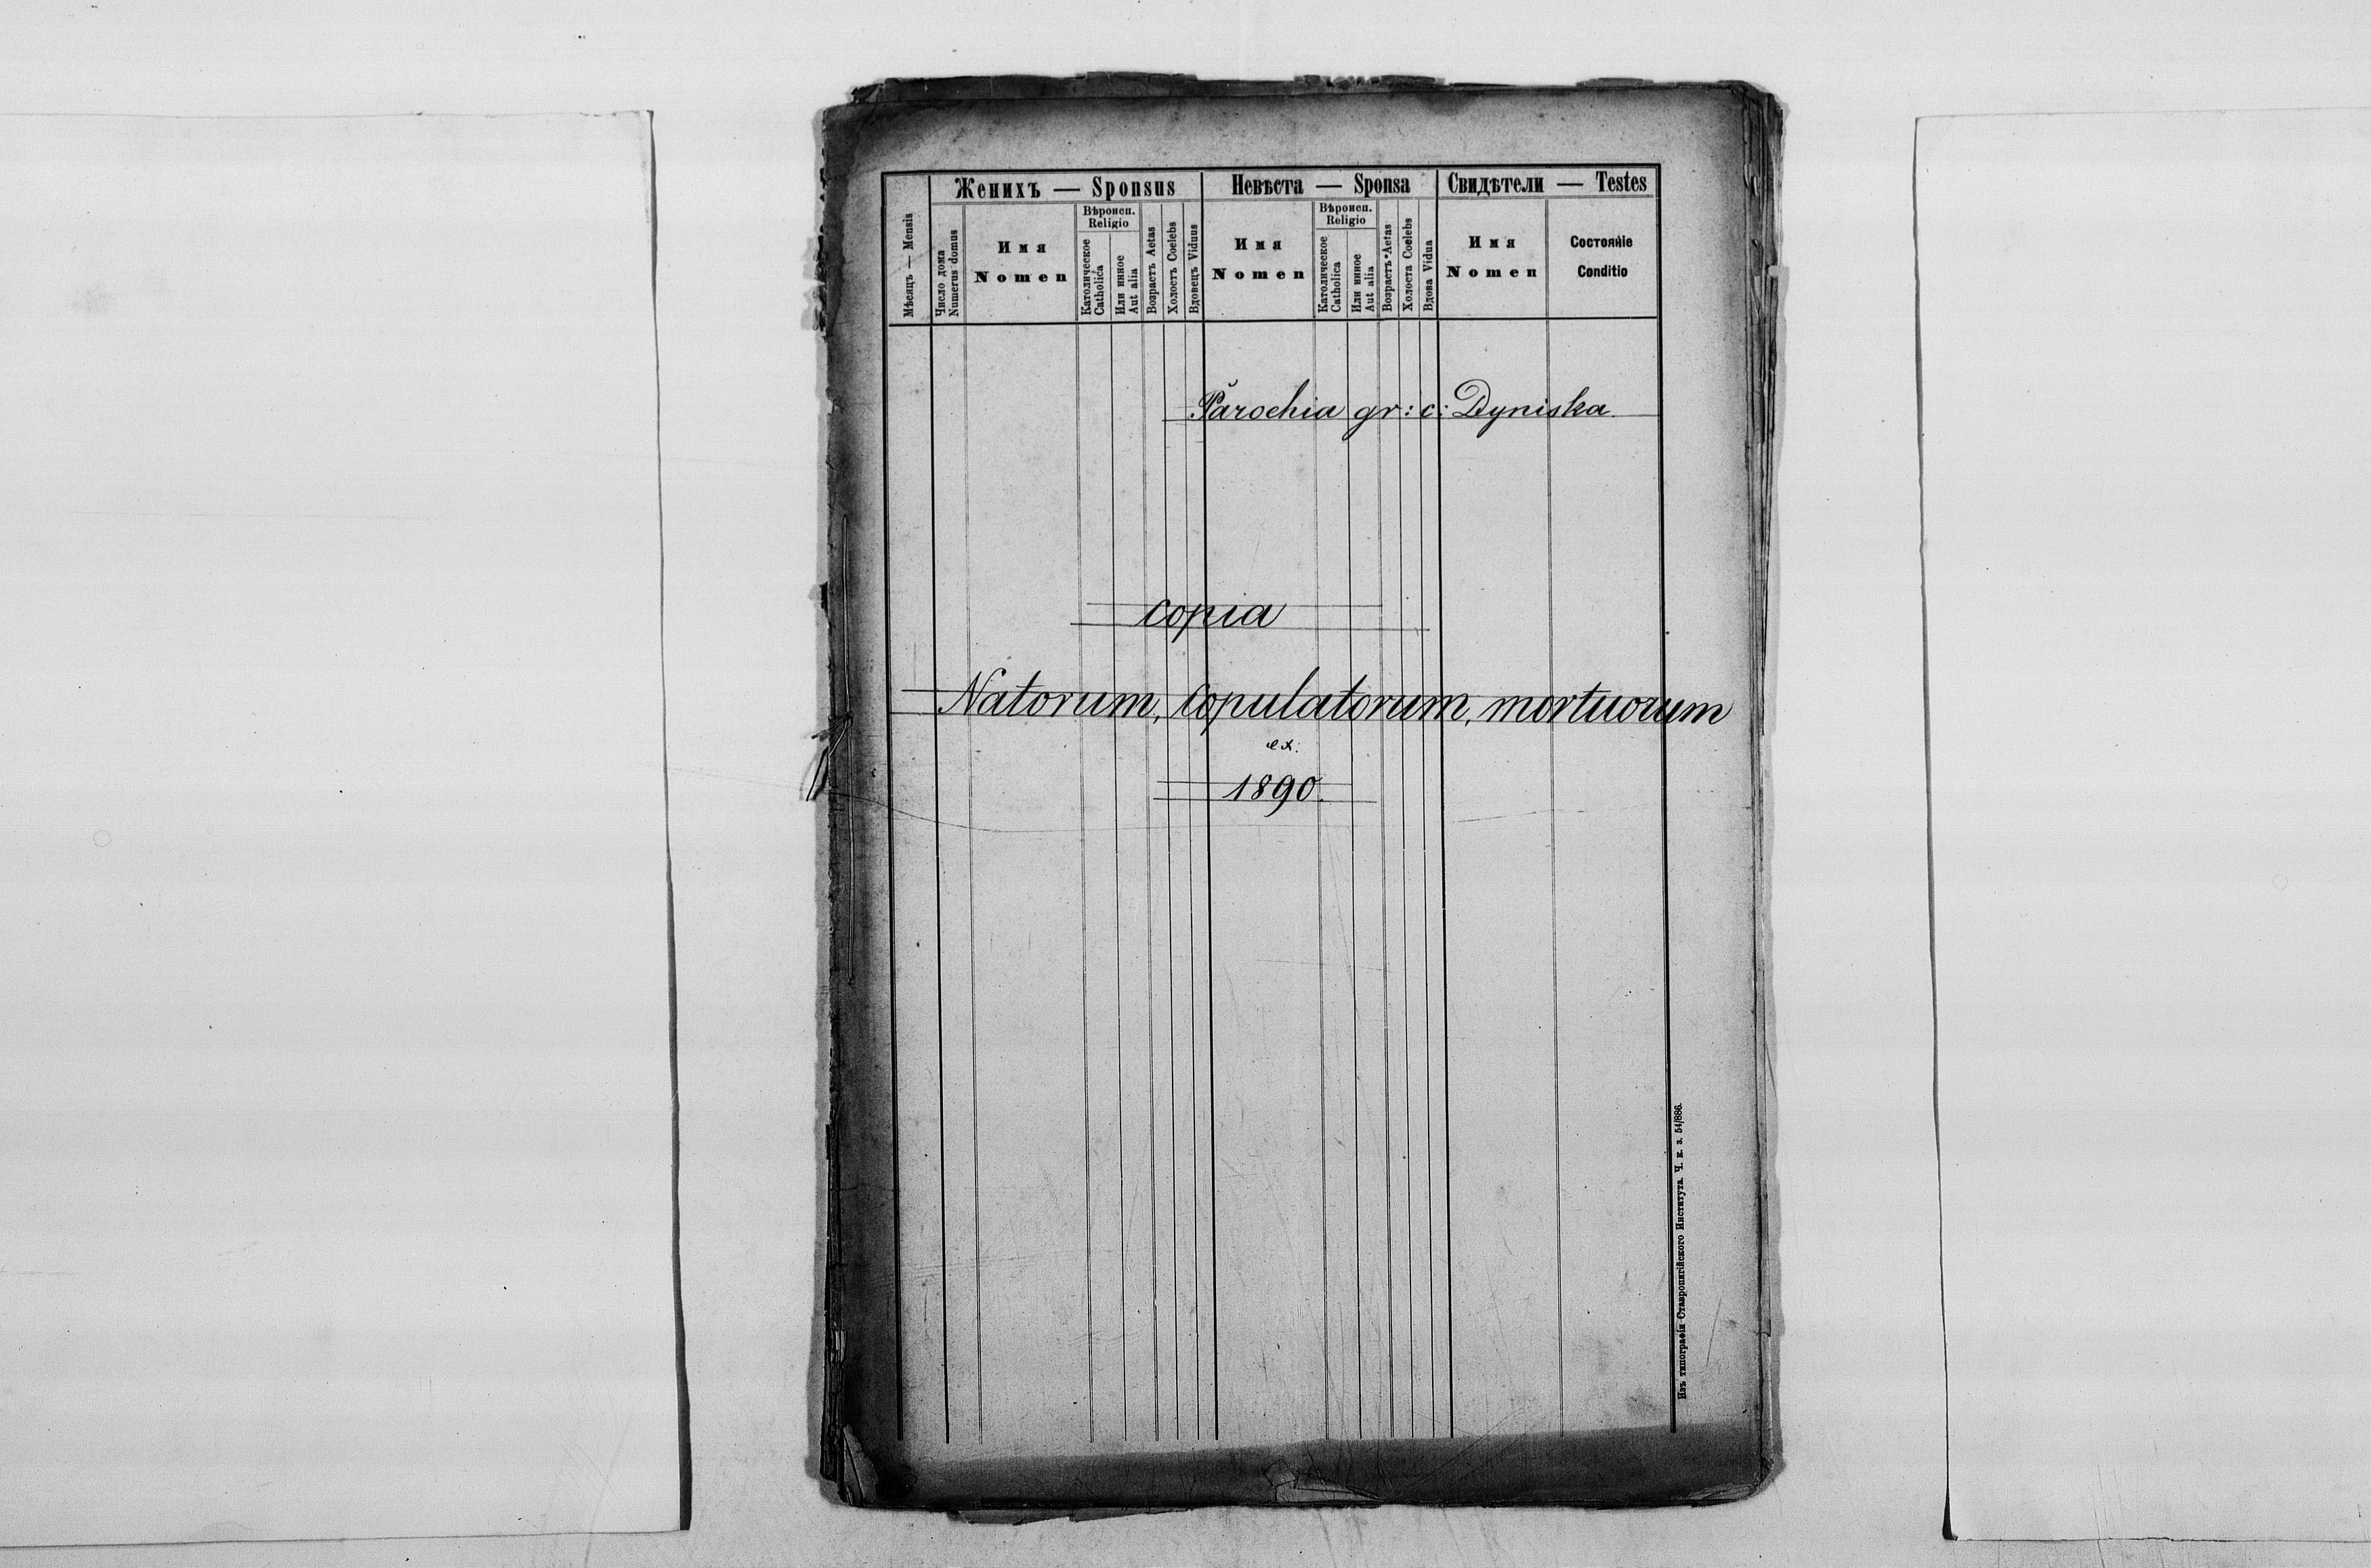 Женихъ — Sponsus
Невѣста — Sponsa
Свидѣтели — Testes
Мѣсяцъ — Mensis
Число дома
Numerus domus
Имя
Nomen
Вѣроисп.
Religio
Католическое
Catholica
Или инное
Aut alia
Возрастъ Aetas
Холостъ Coelebs
Вдовецъ Viduus
Имя
Nomen
Вѣроисп.
Religio
Католическое
Catholica
Или инное
Aut alia
Возрастъ Aetas
Холоста Coelebs
Вдова Vidua
Имя
Nomen
Состояніе
Conditio
Parochia gr: c: Dyniska.
copia
Natorum, copulatorum, mortuorum
ex:
1890.
Изъ типографіи Ставропигійского Института. Ч. к. з. 54/886.